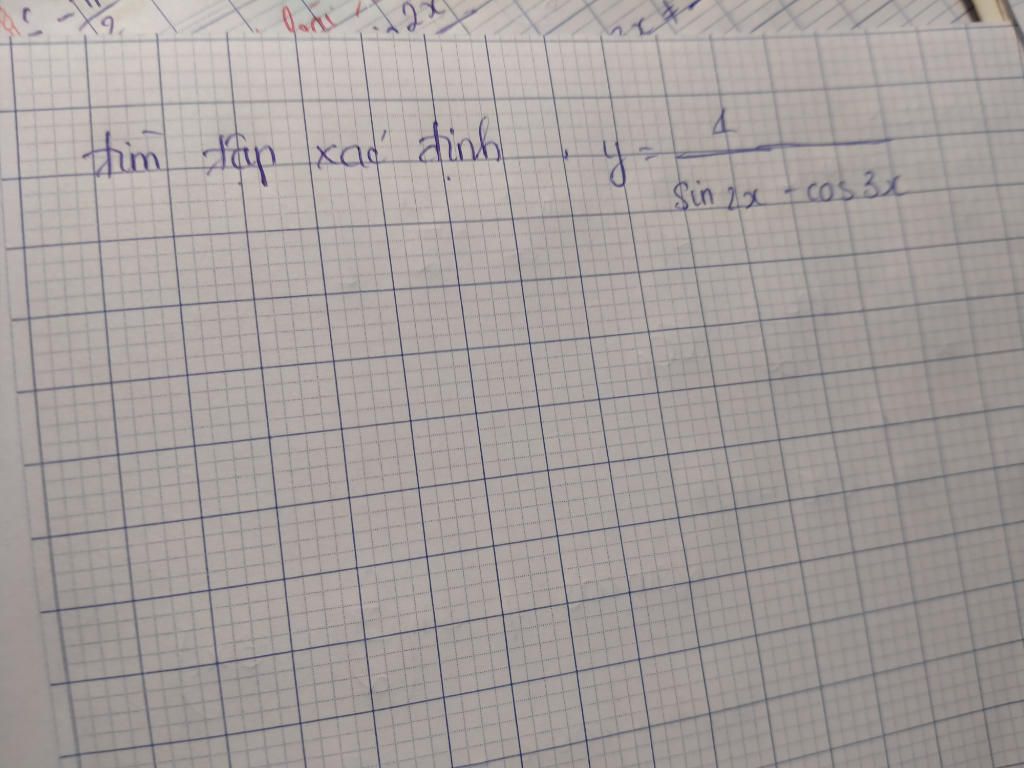 2x
tìm tập xác định . y = 1 / (sin 2x - cos 3x)